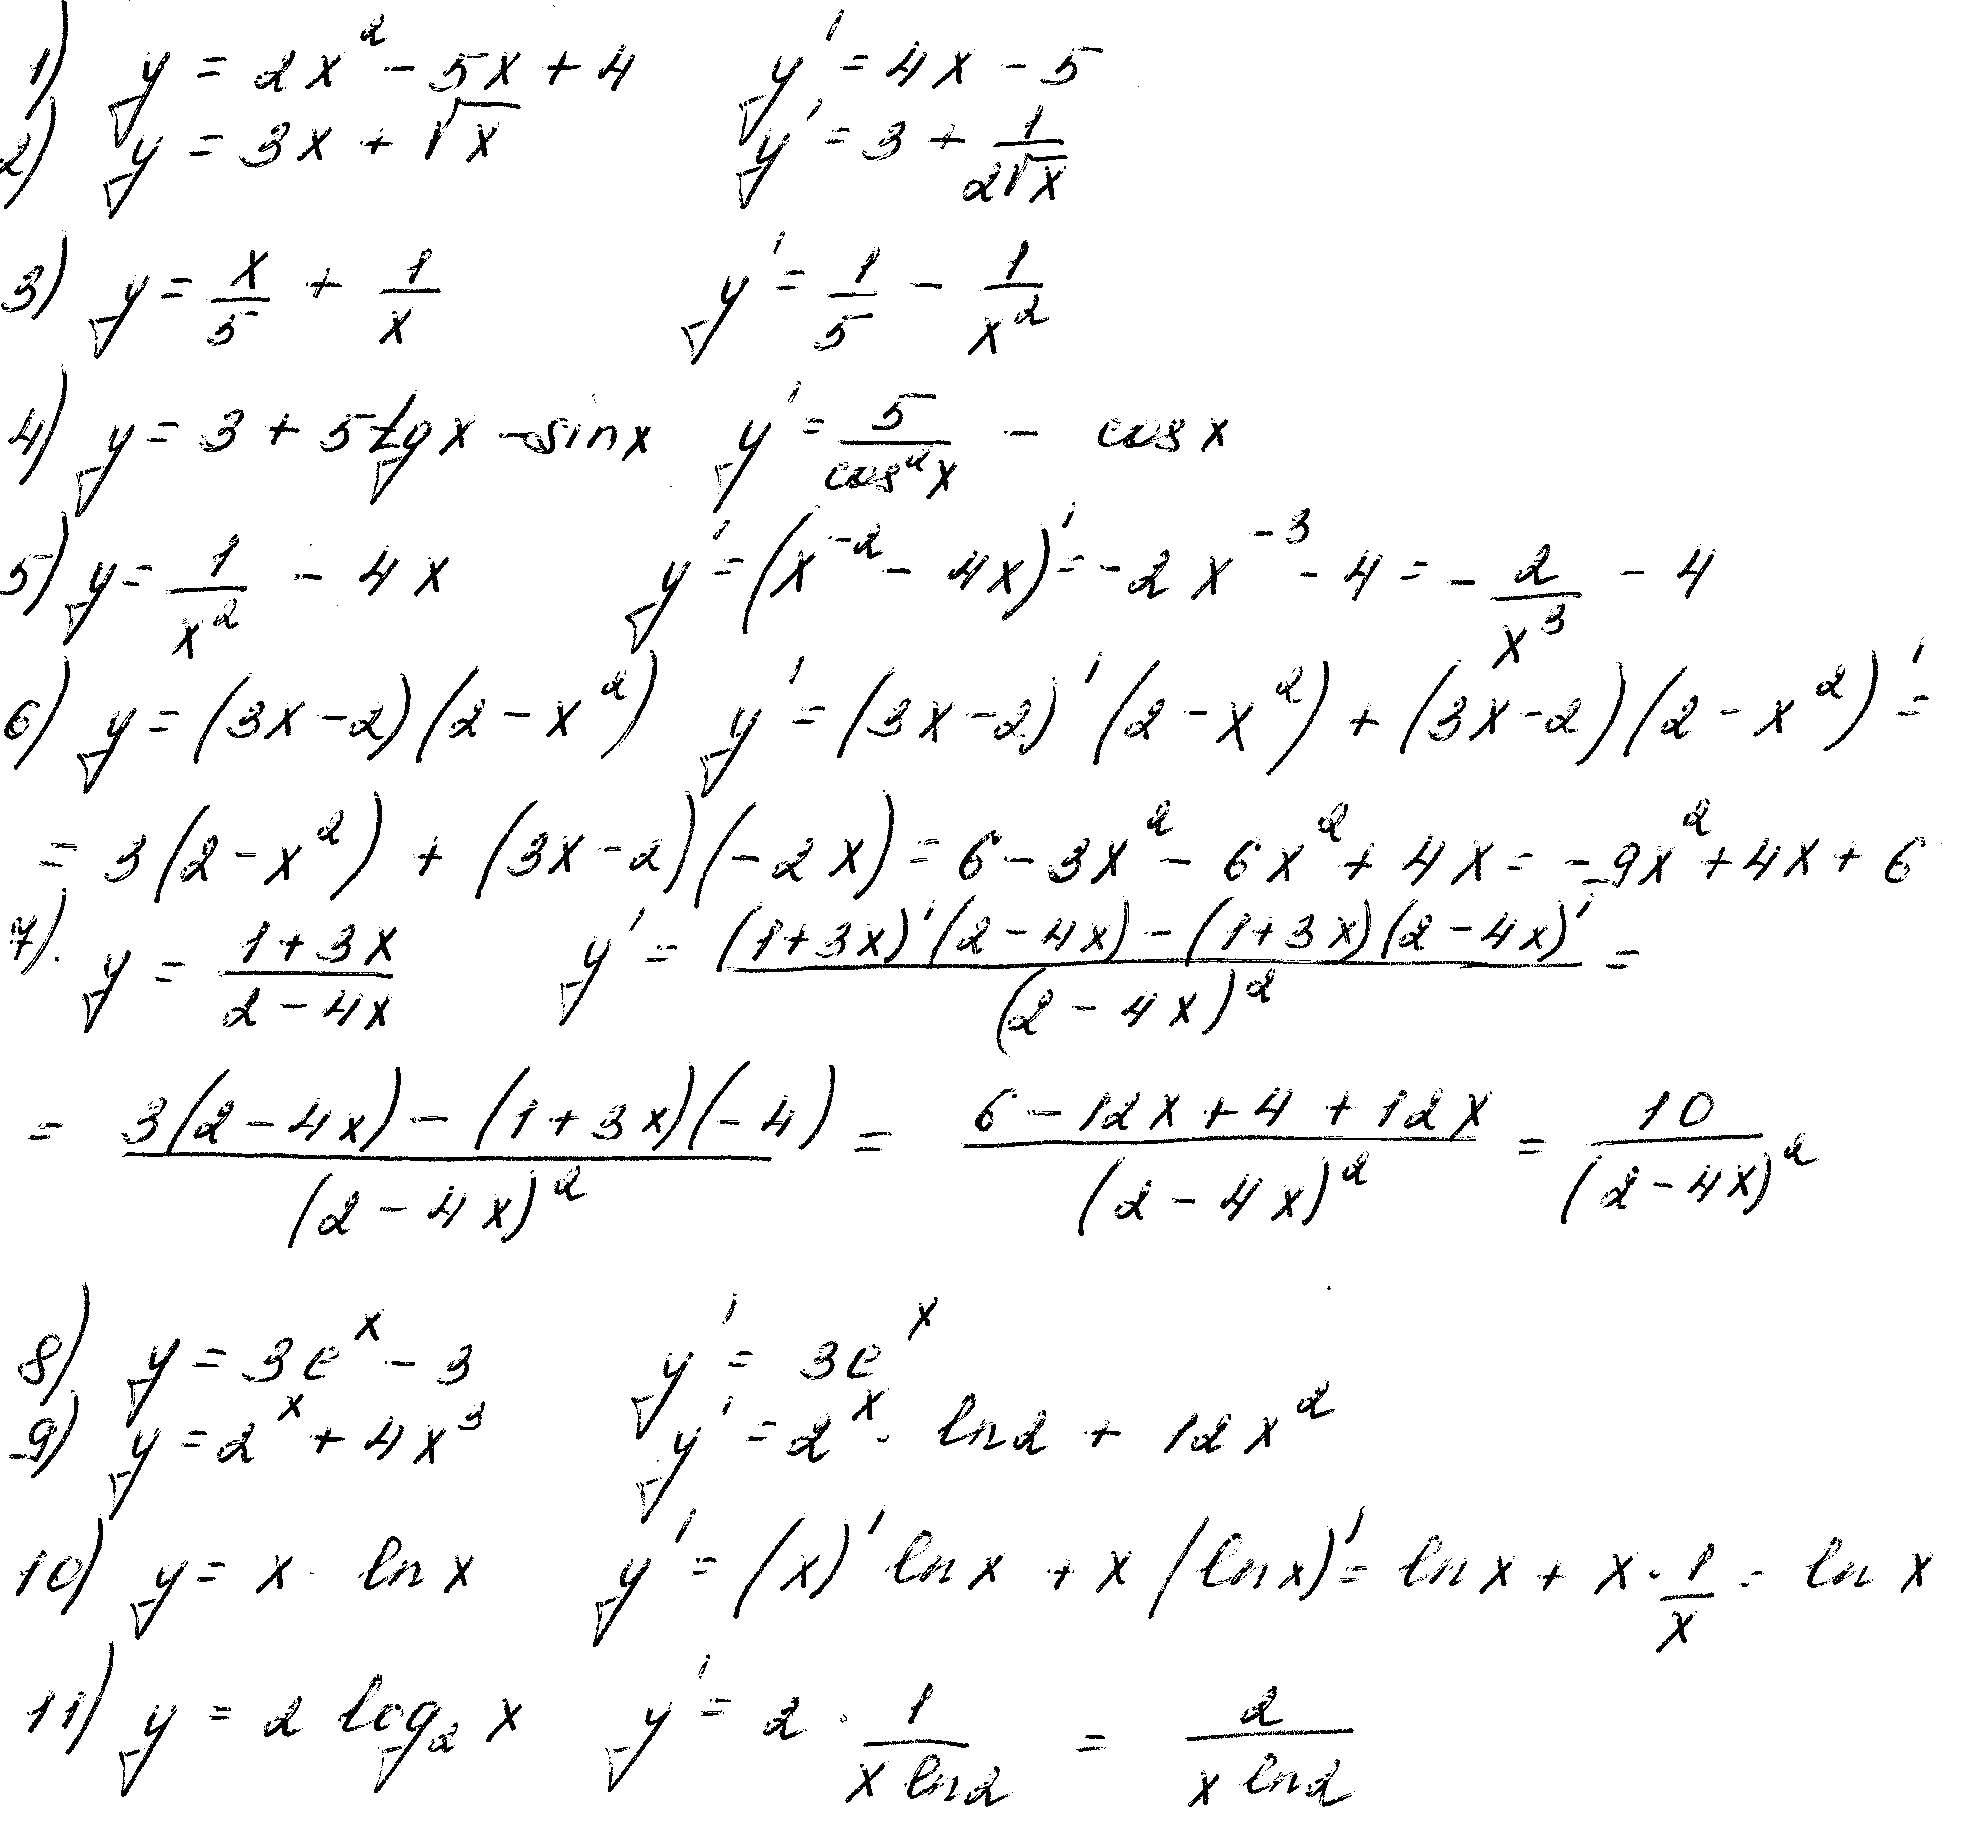 1) y = 2x² - 5x + 4 y' = 4x - 5
2) y = 3x + √x y' = 3 + 1/(2√x)
3) y = x/5 + 1/x y' = 1/5 - 1/x²
4) y = 3 + 5tgx - sinx y' = 5/cos²x - cosx
5) y = 1/x² - 4x y' = (x⁻² - 4x)' = -2x⁻³ - 4 = -2/x³ - 4
6) y = (3x-2)(2-x²) y' = (3x-2)'(2-x²) + (3x-2)(2-x²)' =
= 3(2-x²) + (3x-2)(-2x) = 6 - 3x² - 6x² + 4x = -9x² + 4x + 6
7). y = (1+3x)/(2-4x) y' = ((1+3x)'(2-4x) - (1+3x)(2-4x)')/(2-4x)² =
= (3(2-4x) - (1+3x)(-4))/(2-4x)² = (6-12x+4+12x)/(2-4x)² = 10/(2-4x)²
8) y = 3eˣ - 3 y' = 3eˣ
9) y = 2ˣ + 4x³ y' = 2ˣ · ln2 + 12x²
10) y = x · lnx y' = (x)' lnx + x (lnx)' = lnx + x · 1/x = lnx
11) y = 2 log₂ x y' = 2 · 1/(x ln2) = 2/(x ln2)